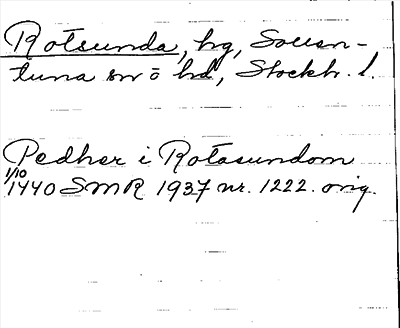 Rotsunda, hg, Sollen-
tuna sn o hd, Stockh. l.
Pedher i Rotasundom
1/10
1440 SMR 1937 nr. 1222. orig.